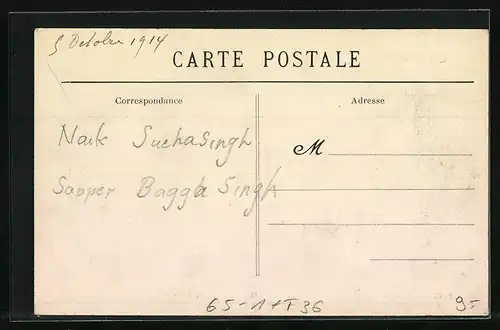 5 Octobre 1914
CARTE POSTALE
Correspondance
Adresse
Naik Suchasingh
M
Sapper Bagga Singh
65-1 + T36
9-